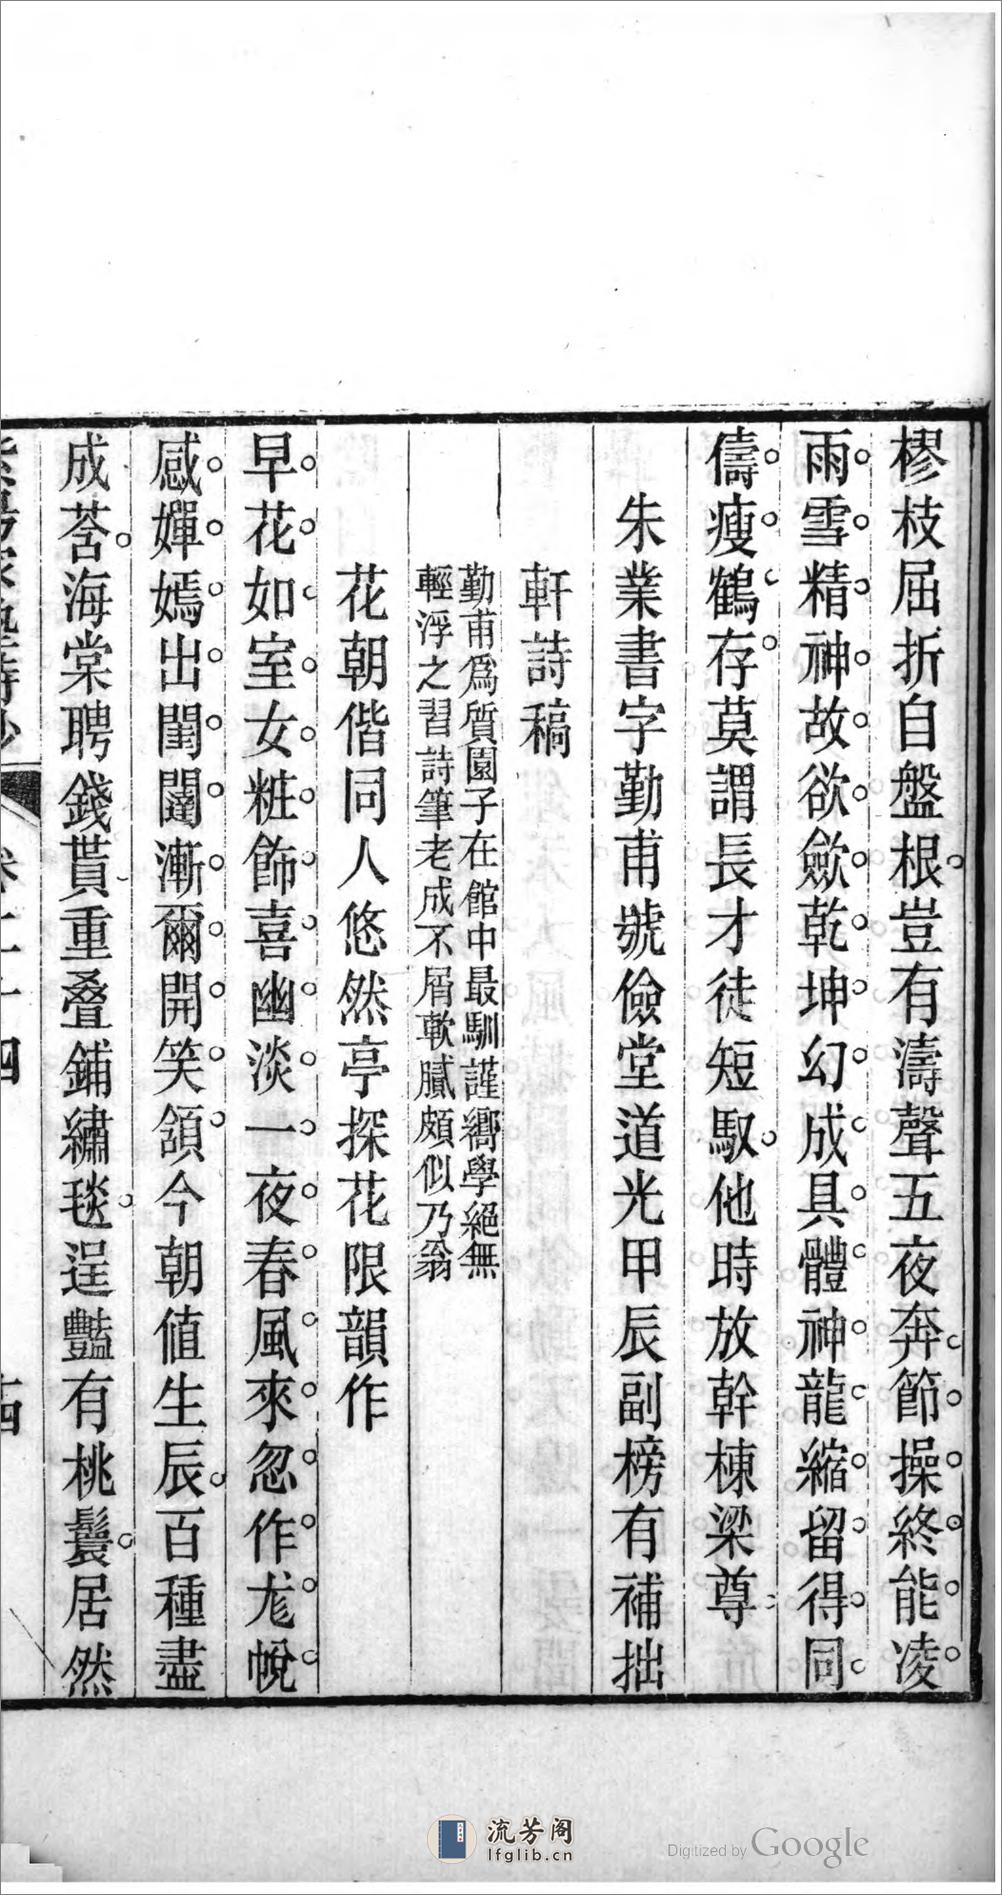 樛枝屈折自盤根豈有濤聲五夜奔節操終能凌
雨雪精神故欲斂乾坤幻成具體神龍縮留得同
儔瘦鶴存莫謂長才徒短馭他時放幹棟梁尊
朱業書字勤甫號儉堂道光甲辰副榜有補拙
軒詩稿
勤甫爲質園子在館中最馴謹嚮學絕無
輕浮之習詩筆老成不屑軟膩頗似乃翁
花朝偕同人悠然亭探花限韻作
早花如室女粧飾喜幽淡一夜春風來忽作尨帨
感嬋嫣出閨闥漸爾開笑頷今朝值生辰百種盡
成萏海棠聘錢貰重疊鋪繡毯逞豔有桃鬟居然
卷二十四
十四
流芳阁
lfglib.cn
Digitized by Google